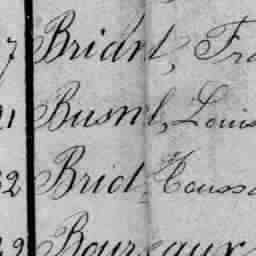 7 Briant, Fra
21 Busnel, Louis
32 Brid, Toussa
Boureaux